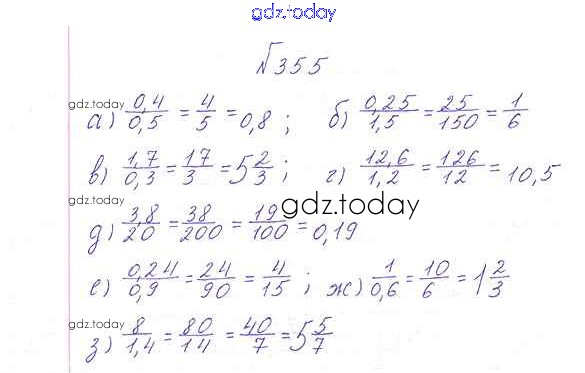 gdz.today
№355
gdz.today
а) 0,4/0,5 = 4/5 = 0,8 ; б) 0,25/1,5 = 25/150 = 1/6
gdz.today
в) 1,7/0,3 = 17/3 = 5 2/3 ; г) 12,6/1,2 = 126/12 = 10,5
gdz.today
gdz.today
д) 3,8/20 = 38/200 = 19/100 = 0,19
gdz.today
е) 0,24/0,9 = 24/90 = 4/15 ; ж) 1/0,6 = 10/6 = 1 2/3
gdz.today
з) 8/1,4 = 80/14 = 40/7 = 5 5/7